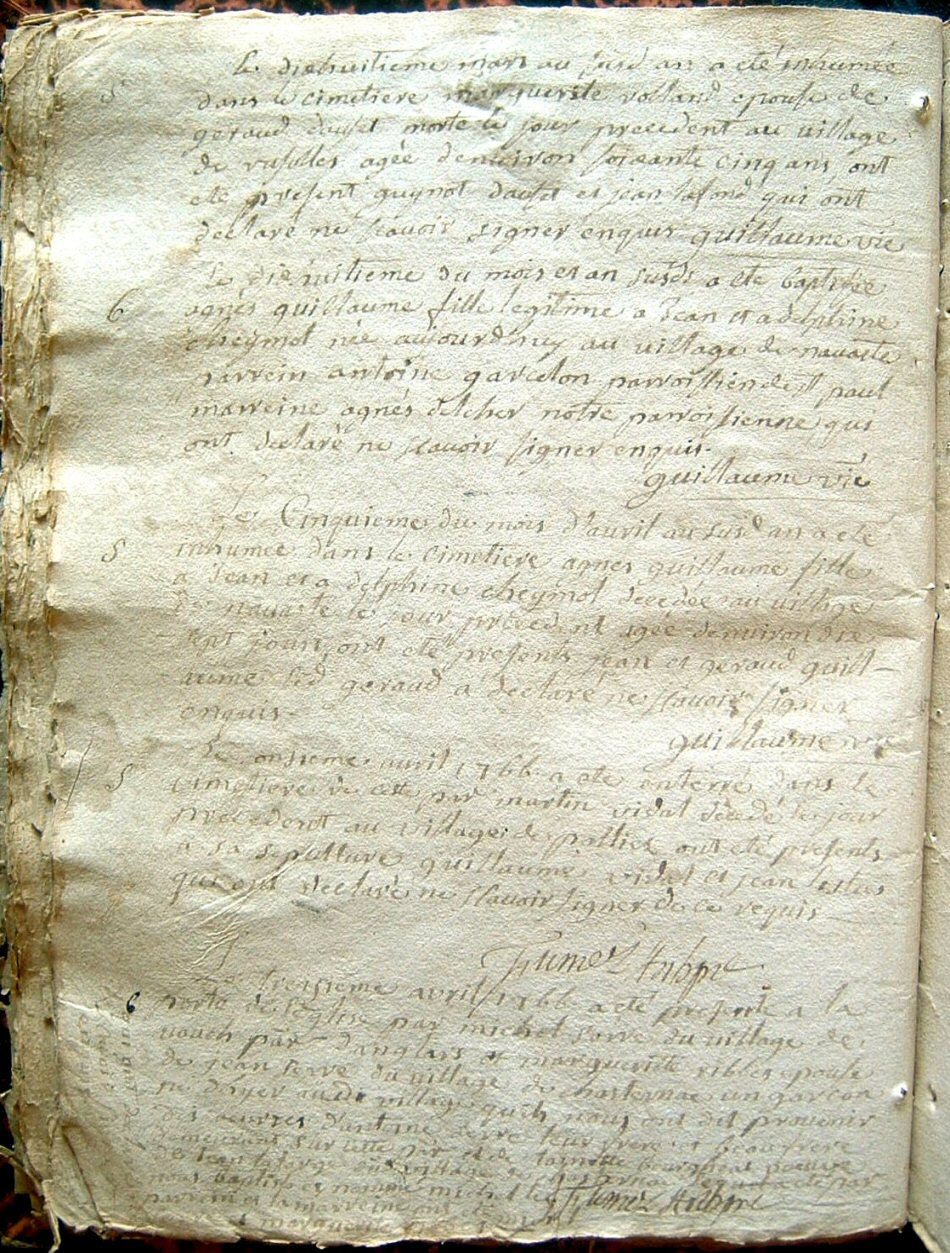 Le dixhuitieme mars au susd an a eté inhumée
S
dans le cimetiere marguerite volland epouse de
geraud dauset morte le jour precedent au village
de agée denviron soixante cinq ans, ont
eté present guynot dauset et jean lafond qui ont
declaré ne scavoir signer enquis guillaume vie
Le dixuitieme du mois et an susd a ete baptisée
6
agnés guillaume fille legitime a Jean et a delphine
cheymol née aujourd'huy au village de navaste
parrein antoine garcelon parroissien de st paul
marreine agnés delcher notre parroissienne qui
ont declaré ne scavoir signer enquis.
guillaume vie
Le Cinquieme du mois d'avril au susd an a eté
S
inhumée dans le cimetiere agnes guillaume fille
a Jean et a delphine cheymol decedée au village
de navaste le jour precedent agée denviron dix
sept jours, ont eté presents jean et geraud guill-
aume led geraud a declaré ne scavoir signer
enquis.
guillaume vie
Le onsieme avril 1766 a eté enterré dans le
S
cimetiere de cette par martin vidal décédé le jour
precedent au village de ont eté presents
a sa sepulture guillaume vidal et jean
qui ont declaré ne scavoir signer de ce requis
Le treisieme avril 1766 a eté presenté a la
6
porte de l'Eglise par michel serre du village de
par danglars et marguerite ribbes epouse
de jean serre du village de chasternac un garcon
ne d'hyer aud village qu'ils nous ont dit provenir
des oeuvres d'antoine serre leur frere et beau frere
demeurant sur cette par et de toinette
de Jean laforge du village a eté par
nous baptisé et nommé michel le
parrein et la marreine ont eté
et marguerite